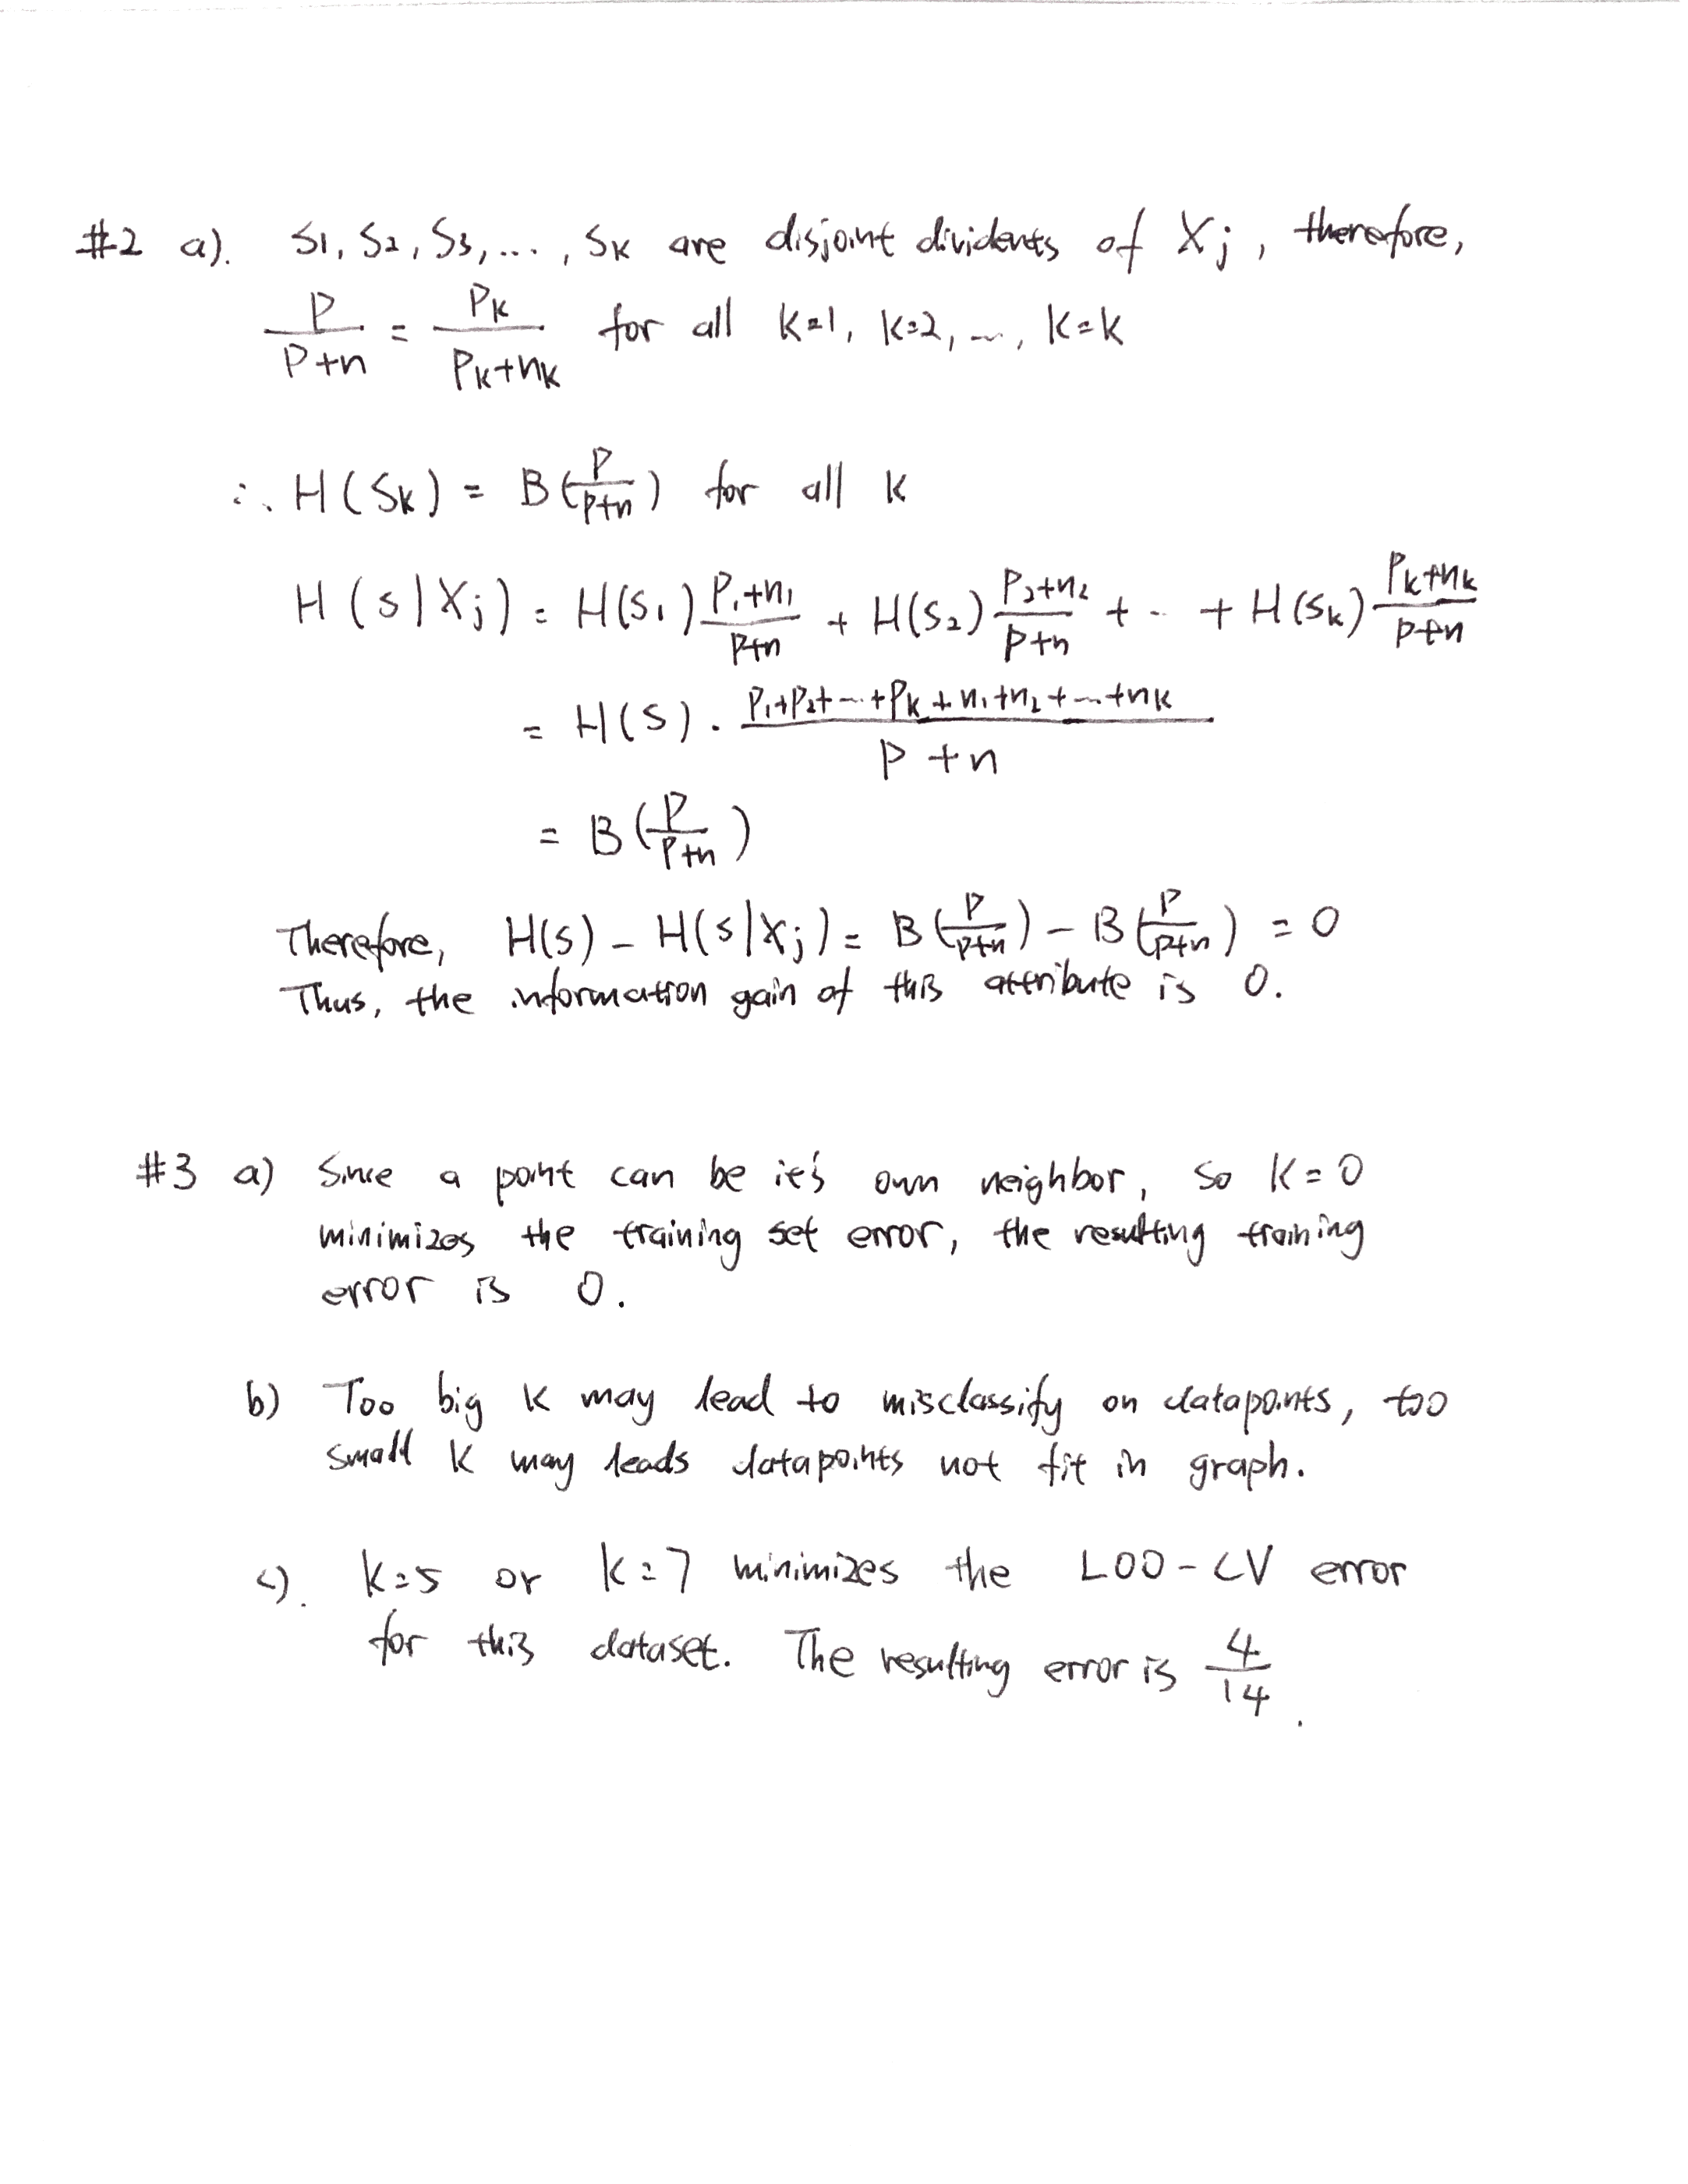 #2 a). S1, S2, S3, ..., SK are disjoint dividents of Xj, therefore,
P/(P+n) = PK/(PK+nK) for all K=1, K=2, ..., K=K
∴ H(SK) = B(P/(P+n)) for all K
H(S|Xj) = H(S1) (P1+n1)/(P+n) + H(S2) (P2+n2)/(P+n) + .. + H(Sk) (Pk+nk)/(P+n)
= H(S) · (P1+P2+...+PK+n1+n2+...+nK)/(P+n)
= B(P/(P+n))
Therefore, H(S) - H(S|Xj) = B(P/(P+n)) - B(P/(P+n)) = 0
Thus, the information gain of this attribute is 0.
#3 a) Since a point can be it's own neighbor, so K=0
minimizes the training set error, the resulting training
error is 0.
b) Too big K may lead to misclassify on datapoints, too
small K may leads datapoints not fit in graph.
c). K=5 or K=7 minimizes the LOO-CV error
for this dataset. The resulting error is 4/14.